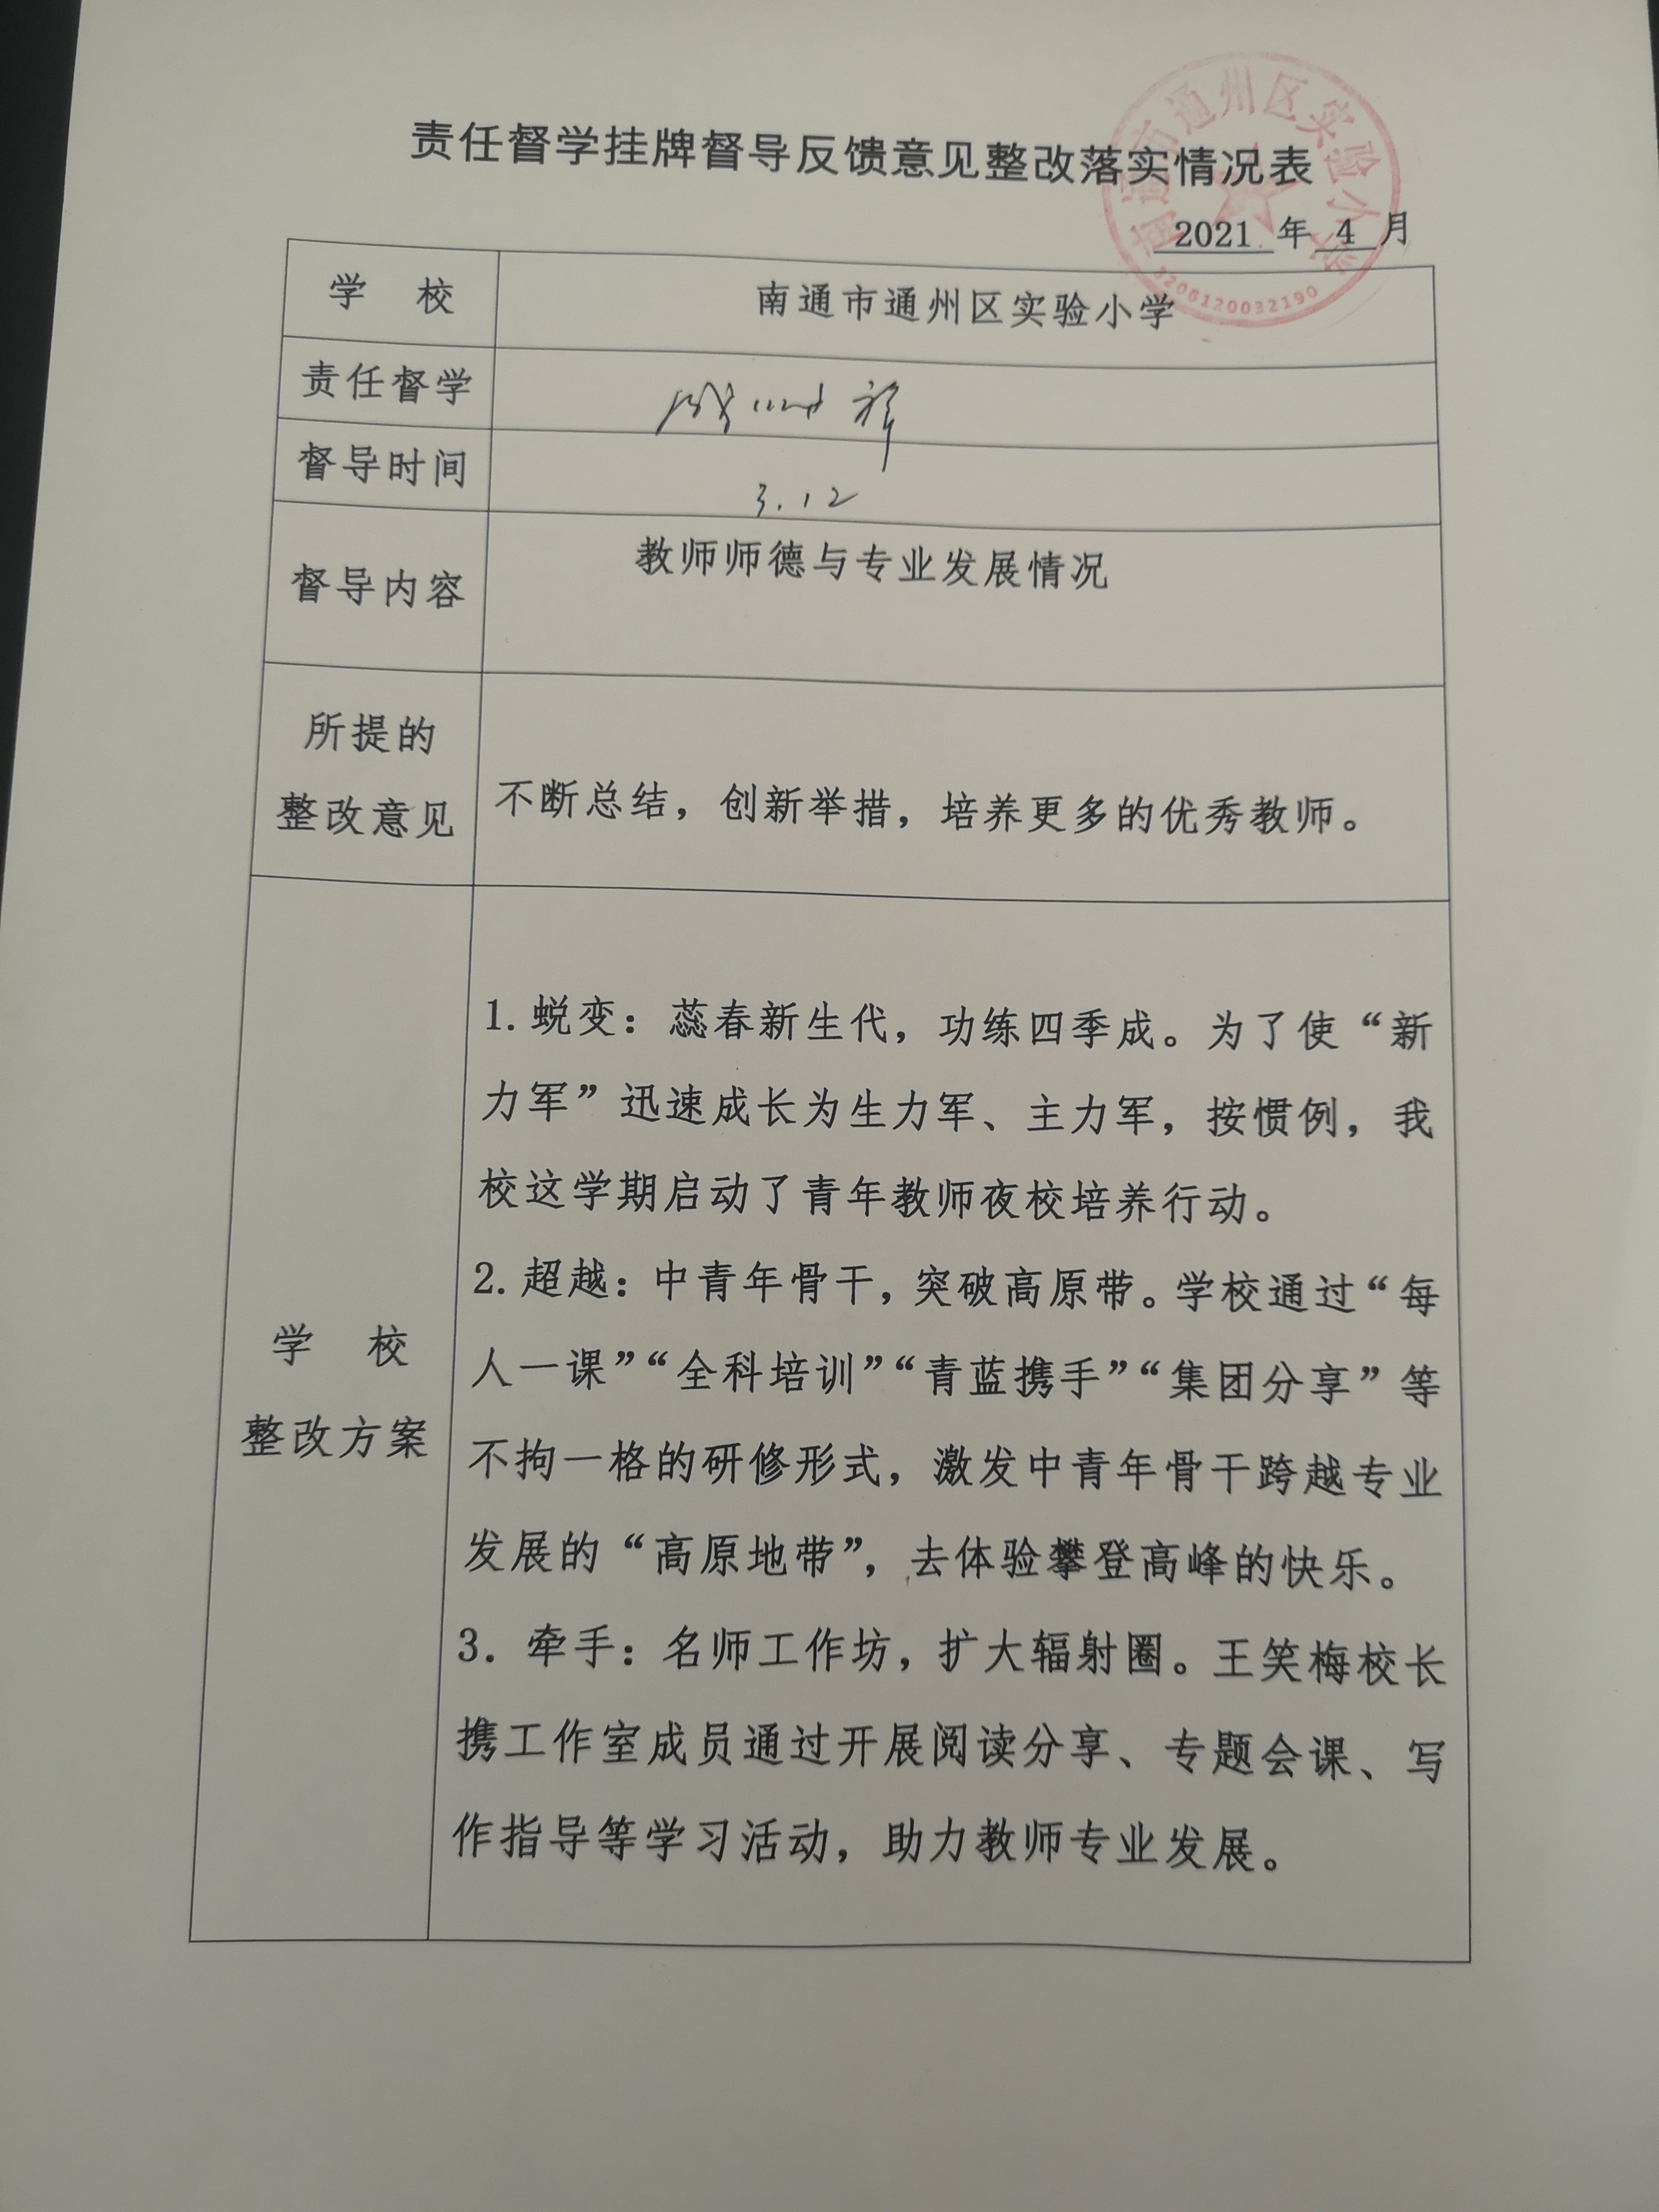 责任督学挂牌督导反馈意见整改落实情况表
2021 年 4 月
南通市通州区实验小学
3206120032190
学 校
南通市通州区实验小学
责任督学
督导时间
3.12
督导内容
教师师德与专业发展情况
所提的
整改意见
不断总结，创新举措，培养更多的优秀教师。
学 校
整改方案
1. 蜕变：蕊春新生代，功练四季成。为了使“新
力军”迅速成长为生力军、主力军，按惯例，我
校这学期启动了青年教师夜校培养行动。
2. 超越：中青年骨干，突破高原带。学校通过“每
人一课”“全科培训”“青蓝携手”“集团分享”等
不拘一格的研修形式，激发中青年骨干跨越专业
发展的“高原地带”，去体验攀登高峰的快乐。
3. 牵手：名师工作坊，扩大辐射圈。王笑梅校长
携工作室成员通过开展阅读分享、专题会课、写
作指导等学习活动，助力教师专业发展。